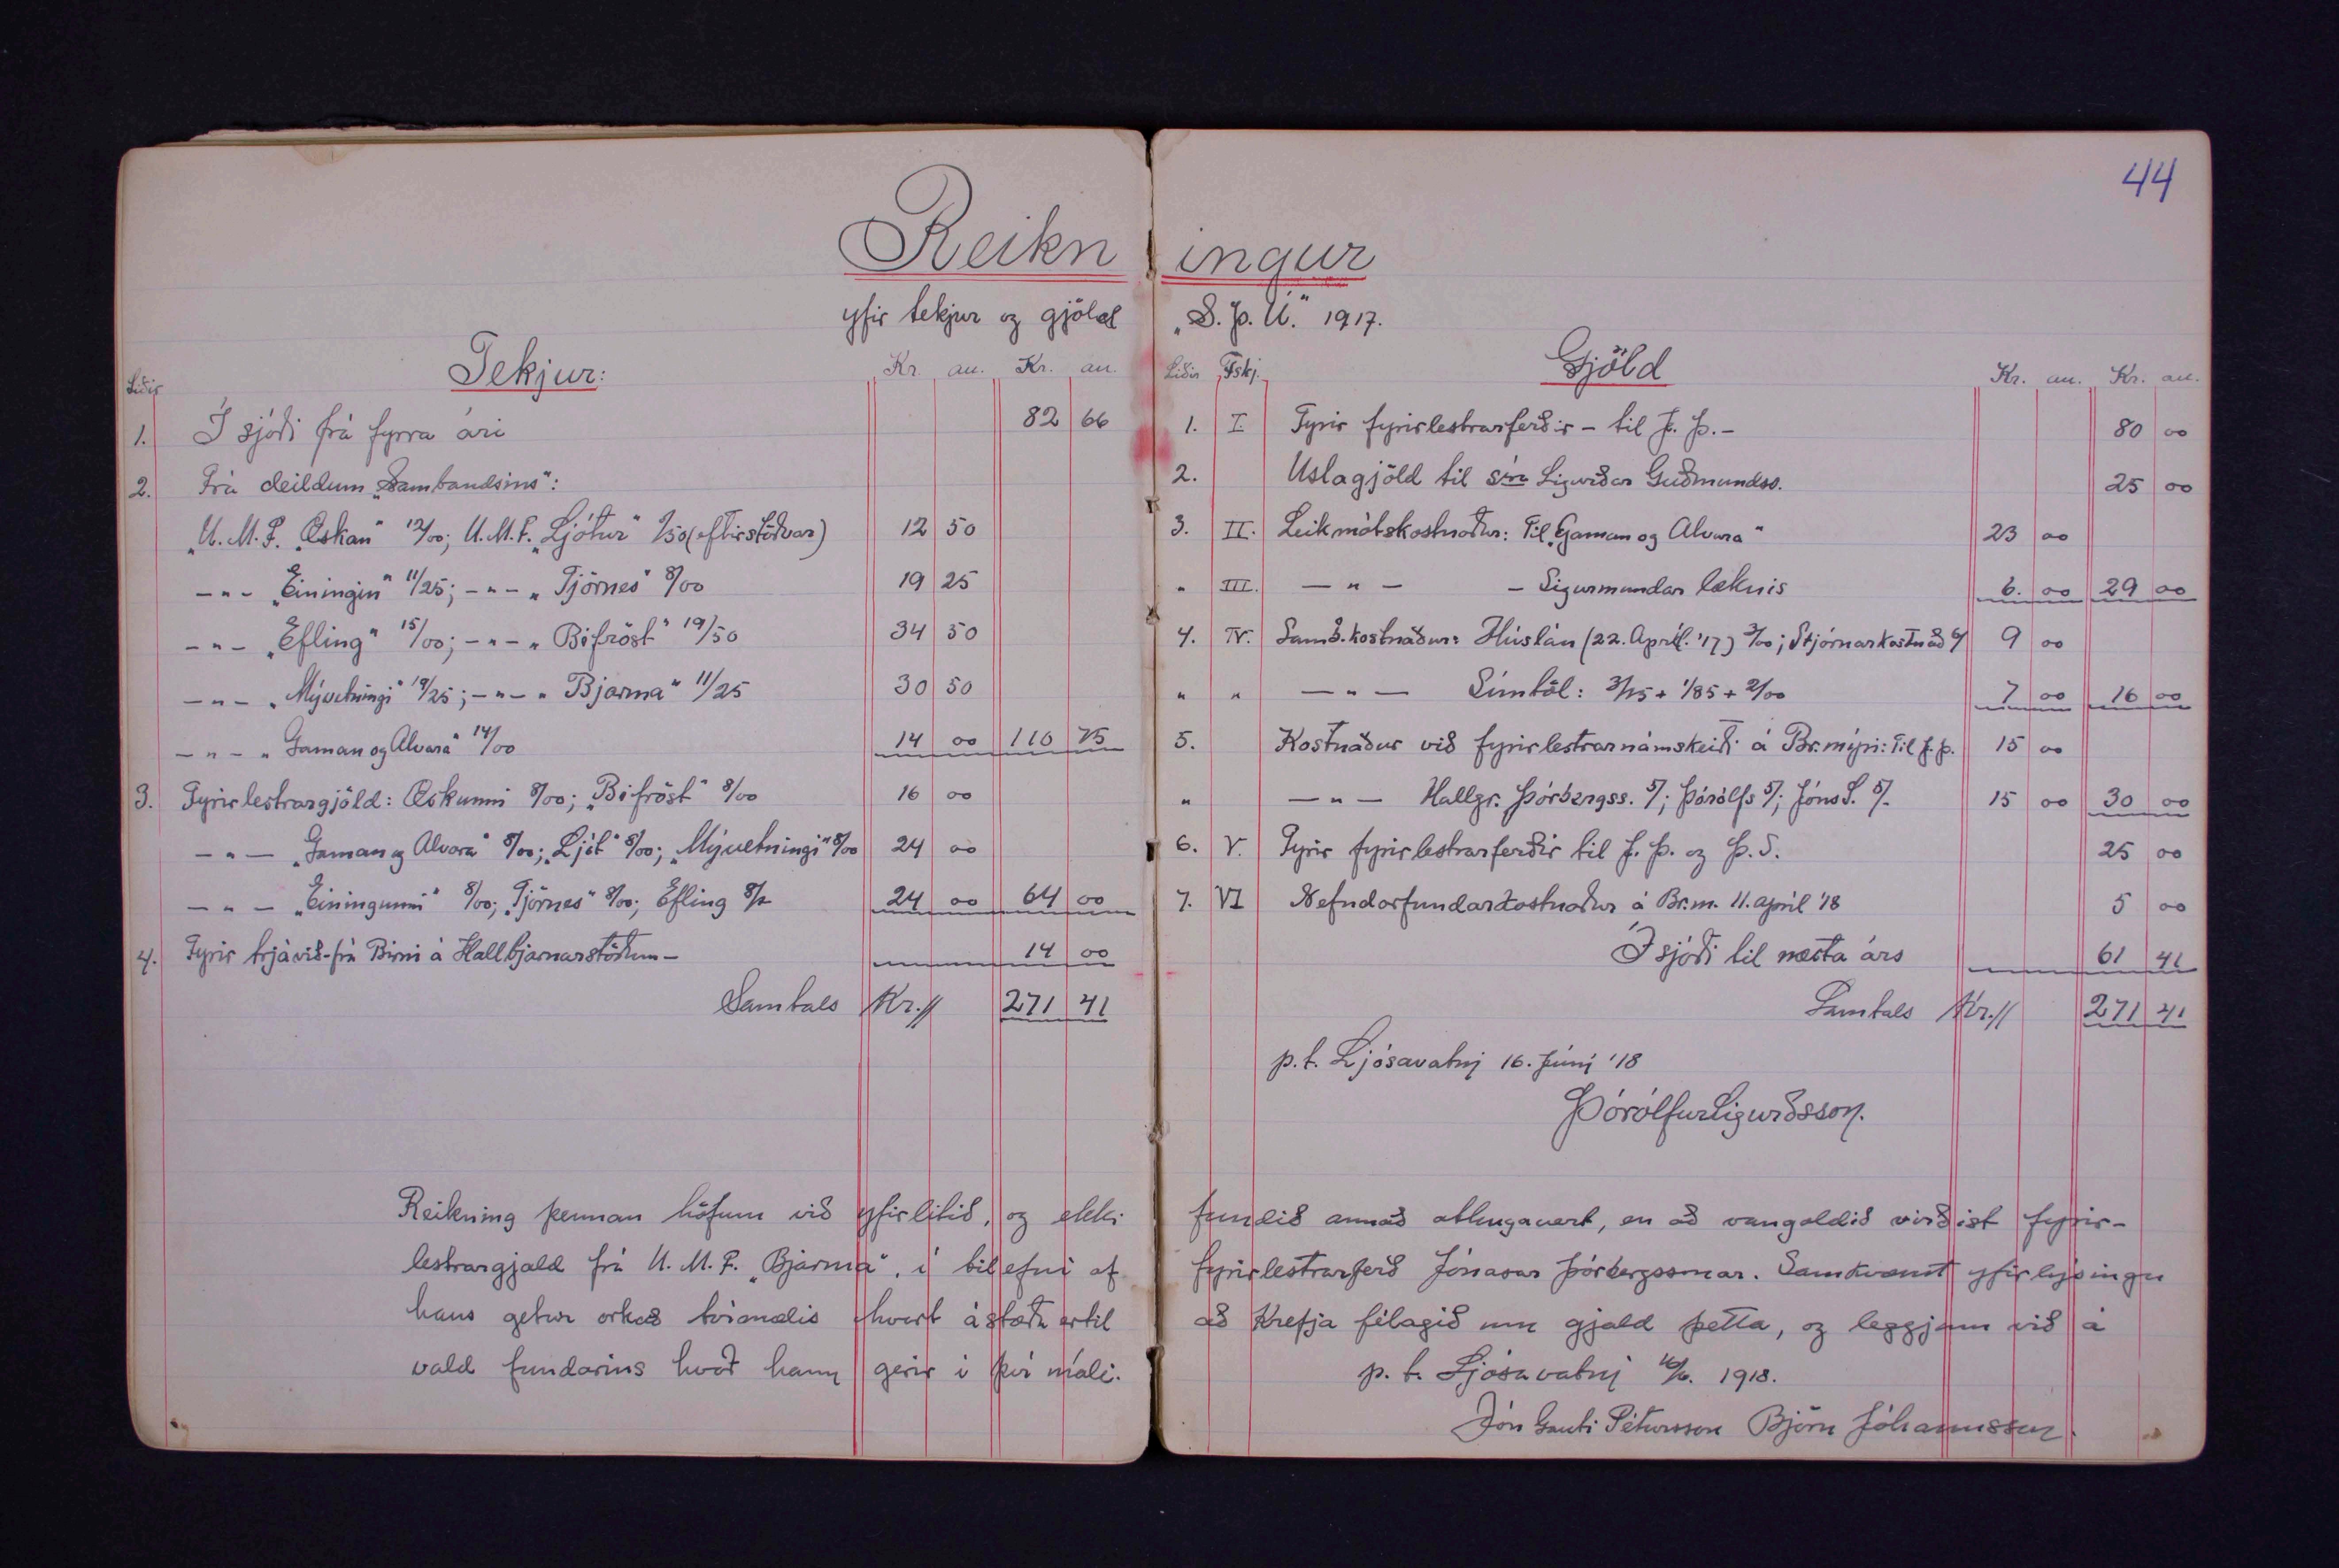 44
Reikningur
yfir tekjur og gjöld „S.Þ.U." 1917.
Tekjur:
Liðir Kr. au. Kr. au.
1. Í sjóði frá fyrra ári 82 66
2. Frá deildum „Sambandsins":
„U.M.F. „Æskan" 12/00; U.M.F. „Ljótur" 1/50 (eftirstöðvar) 12 50
— " — „Einingin" 11/25; — " — „Tjörnes" 8/00 19 25
— " — „Efling" 15/00; — " — „Bifröst" 19/50 34 50
— " — „Mývetningi" 19/25; — " — „Bjarma" 11/25 30 50
— " — „Gaman og Alvara" 14/00 14 00 110 75
3. Fyrirlestrargjöld: Æskunni 8/00; „Bifröst" 8/00 16 00
— " — „Gaman og Alvara" 8/00; „Ljót" 8/00; „Mývetningi" 8/00 24 00
— " — „Einingunni" 8/00; „Tjörnes" 8/00; Efling 8/00 24 00 64 00
4. Fyrir trjávið - frá Birni á Hallbjarnarstöðum — 14 00
Samtals Kr. // 271 41
Gjöld
Liðir Fskj. Kr. au. Kr. au.
1. I. Fyrir fyrirlestrarferðir - til J. Þ. - 80 00
2. Uslagjöld til síra Sigurðar Guðmundss. 25 00
3. II. Leikmótskostnaður: Til „Gaman og Alvara" 23 00
" III. — " — - Sigurmundar læknis 6. 00 29 00
4. IV. Samb.kostnaður: Húslán (22. Apríl. '17) 3/00; Stjórnarkostnað 6/ 9 00
" " — " — Símtöl: 3/15 + 1/85 + 2/00 7 00 16 00
5. Kostnaður við fyrirlestrarnámskeið á Br.mýri: Til J.Þ. 15 00
" — " — Hallgr. Þórbergss. 5/; Þórólfs 5/; Jóns S. 5/. 15 00 30 00
6. V. Fyrir fyrirlestrarferðir til J. Þ. og Þ. S. 25 00
7. VI Nefndarfundarkostnaður á Br.m. 11. apríl '18 5 00
Í sjóði til næsta árs 61 41
Samtals Kr. // 271 41
p.t. Ljósavatni 16. Júní '18
Þórólfur Sigurðsson.
Reikning þennan höfum við yfirlitið, og ekki fundið annað athugavert, en að vangoldið virðist fyrir-
lestrargjald frá U.M.F. „Bjarma", í tilefni af fyrirlestrarferð Jónasar Þórbergssonar. Samkvæmt yfirlýsingu
hans getur orkað tvímælis hvort ástæða er til að krefja félagið um gjald þetta, og leggjum við á
vald fundarins hvað hann gerir í því máli. p.t. Ljósavatni 16/6. 1918.
Jón Gauti Pétursson Björn Jóhannsson.